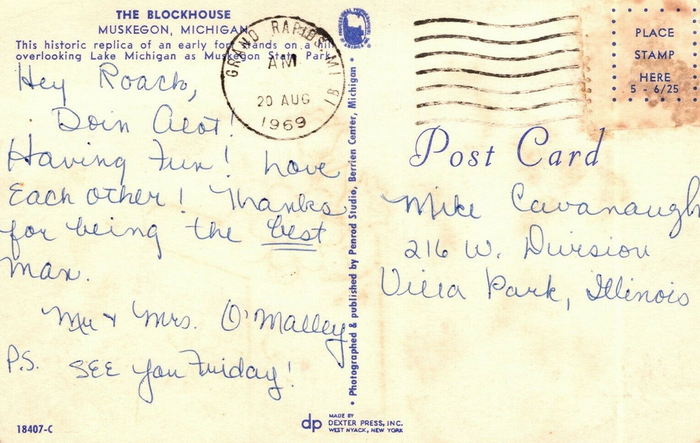 THE BLOCKHOUSE
MUSKEGON, MICHIGAN
This historic replica of an early fort stands on a hill
overlooking Lake Michigan as Muskegon State Park.
Hey Roach,
Doin Alot!
Having Fun! Love
Each other! Thanks
for being the best
man.
Mr & Mrs. O'Malley
P.S. SEE you Friday!
18407-C
GRAND RAPIDS, MI
AM
20 AUG
1969
• Photographed & published by Penrod Studio, Berrien Center, Michigan •
dp MADE BY
DEXTER PRESS, INC.
WEST NYACK, NEW YORK
PLACE
STAMP
HERE
5 - 6/25
Post Card
Mike Cavanaugh
216 W. Division
Villa Park, Illinois